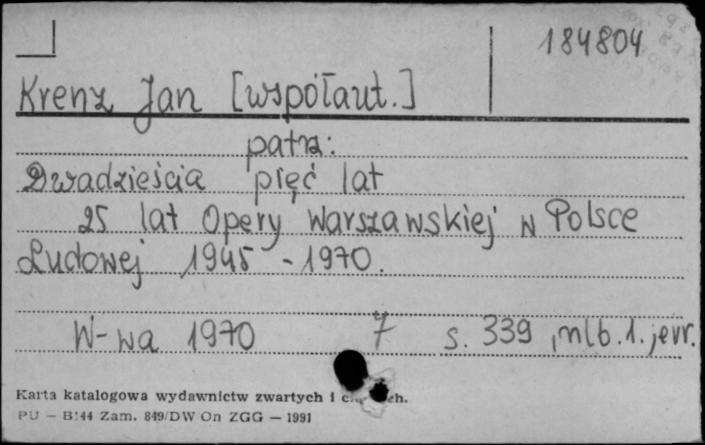 184804
Krenz Jan [współaut.]
patrz:
Dwadzieścia pięć lat
25 lat Opery Warszawskiej w Polsce
Ludowej 1945 - 1970.
W-wa 1970 7 s. 339, nlb. 1. jerr.
Karta katalogowa wydawnictw zwartych i
PU — B/44 Zam. 849/DW On ZGG — 1991